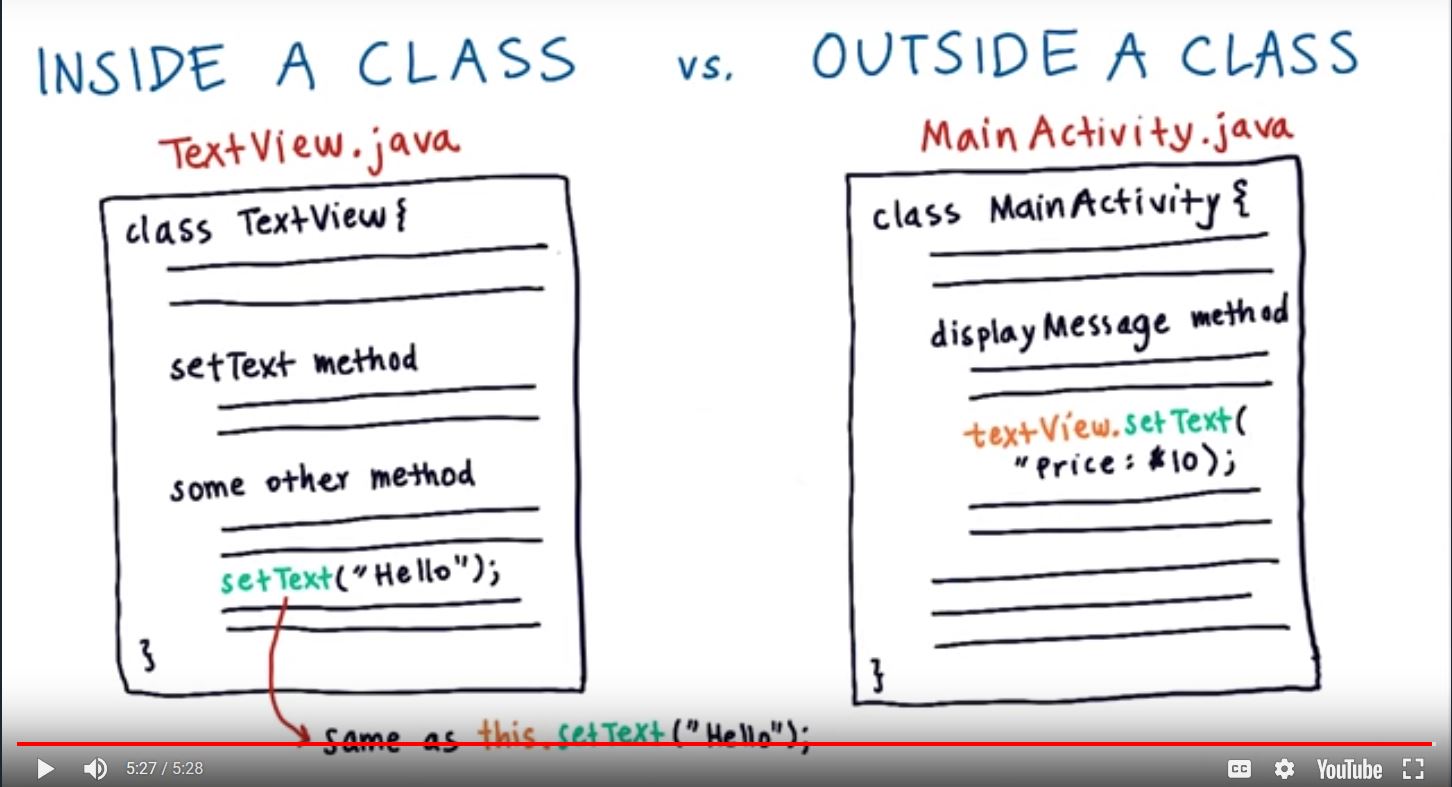 INSIDE A CLASS vs. OUTSIDE A CLASS
TextView.java
class TextView {
setText method
some other method
setText("Hello");
}
same as this.setText("Hello");
MainActivity.java
class MainActivity {
displayMessage method
textView.setText(
"Price: $10);
}
5:27 / 5:28
CC
YouTube